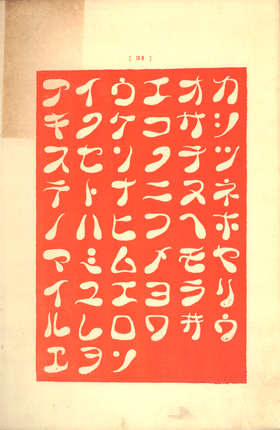 [ 31 ]
アイウエオカ
キクケコサシ
スセソタチツ
テトナニヌネ
ノハヒフヘホ
マミムメモヤ
イユエヨラリ
ルレロワヰウ
ヱヲン